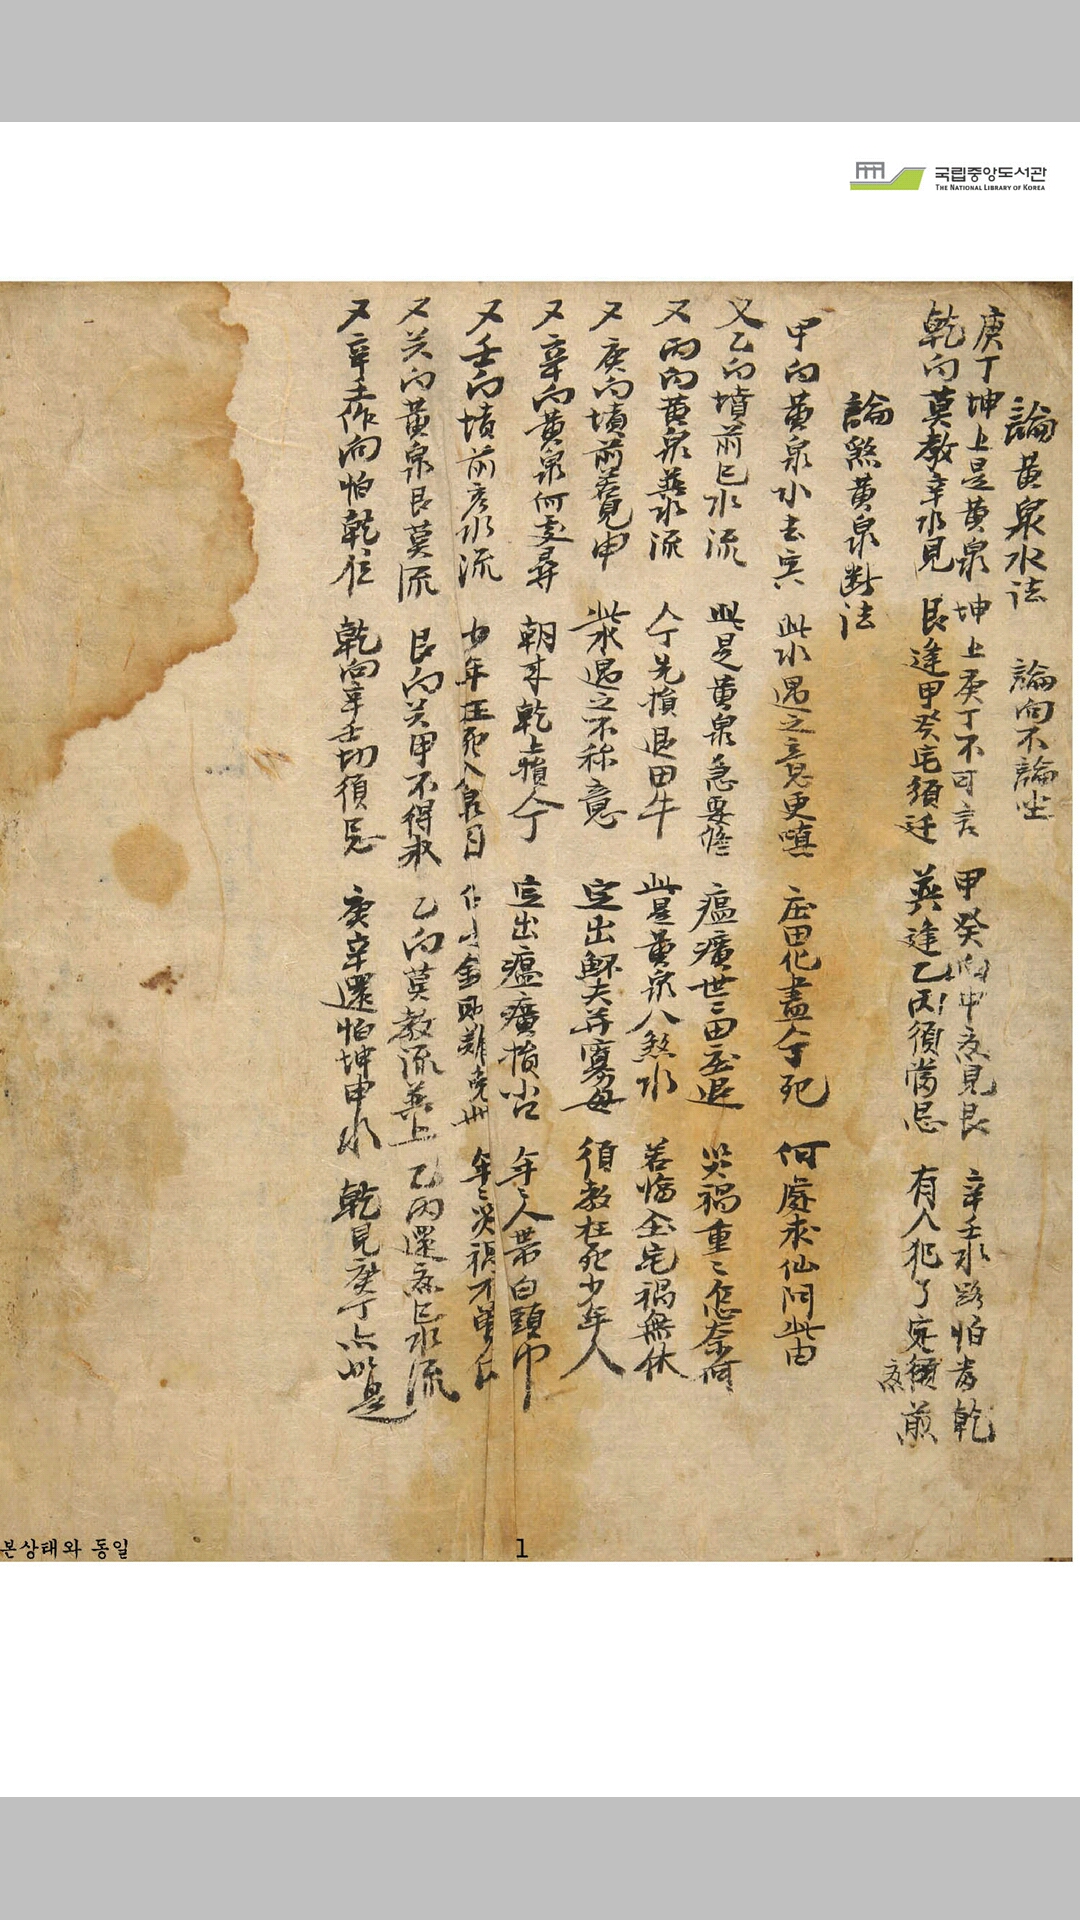 국립중앙도서관
THE NATIONAL LIBRARY OF KOREA
論黃泉水法 論向不論坐
庚丁坤上是黃泉 坤上庚丁不可言 甲癸向中 見艮 辛壬水路怕當乾
乾向莫教辛水見 艮逢甲癸宅須迁 巽逢乙丙須當忌 有人犯了 須 煎
論煞黃泉斷法
甲向黃泉水去寅 此水遇之意更嗔 庄田化盡人丁死 何處求仙問此由
又乙向墳前巳水流 此是黃泉急要 瘟㾮世〻田庄退 災禍重〻怎奈何
又丙向黃泉巽水流 人丁先損退田牛 此是黃泉八煞水 若臨全宅禍無休
又庚向墳前若見申 此水遇之不称意 定出鰥夫并寡母 須教枉死少年人
又辛向黃泉何處尋 朝來乾上損人丁 定出瘟㾮損小口 年〻人帶白頭巾
又壬向墳前亥水流 少年枉死入泉 年〻災禍
又癸向黃泉艮莫流 艮向癸甲不得 乙向莫教流巽上 乙丙還 巳水流
又辛壬作向怕乾位 乾向辛壬切須忌 庚辛還怕坤申水 乾見庚丁亦如是
본상태와 동일
1